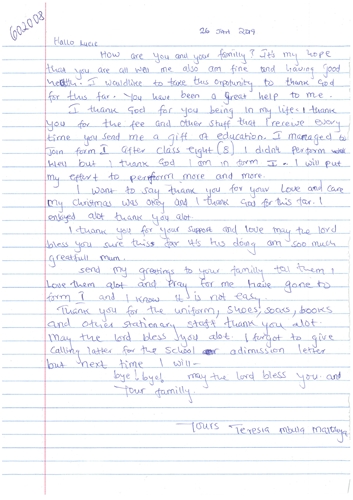 602008
26 JAN 2019
Hallo Lucie
How are you and your familly? It's my hope
that you are all well me also am fine and having good
health. I wouldlike to take this oportunity to thank God
for this far. You have been a great help to me.
I thank God for you being in my life. I thank
you for the fee and other stuff that I receive every
time you send me a gift of education. I managed to
join form I after class eight (8) I didn't perform
well but I thank God I am in form I. I will put
my effort to perform more and more.
I want to say thank you for your love and care
my Christmas was okey and I thank God for this far. I
enjoyed alot thank you alot.
I thank you for your support and love may the lord
bless you sure this far it's his doing am soo much
greatfull mum.
send my greetings to your familly tell them I
love them alot and pray for me have gone to
form I and I know it is not easy.
Thank you for the uniform, shoes, socks, books
and other stationary staff thank you alot
may the lord bless you alot. I forgot to give
calling latter for the school or admission letter
but next time I will-
bye! bye! may the lord bless you and
your familly.
Yours Teresia